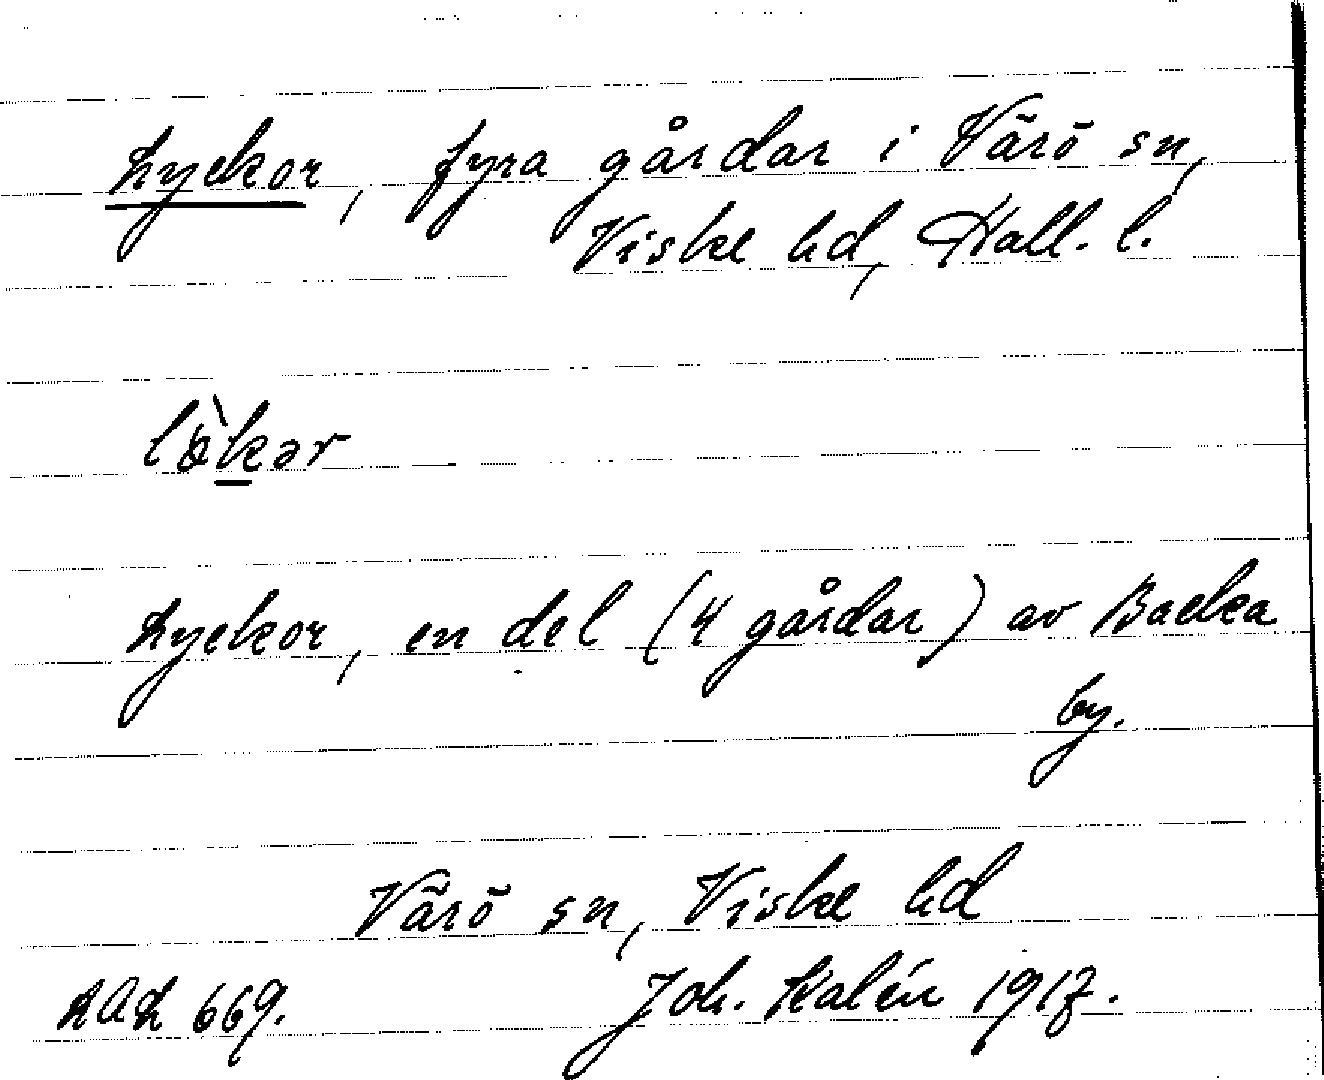 Lyckor, fyra gårdar i Värö sn,
Viske hd, Hall. l.
lö̀kər
Lyckor, en del (4 gårdar) av Backa
by.
Värö sn, Viske hd
LAL 669. Joh. Kalén 1917.